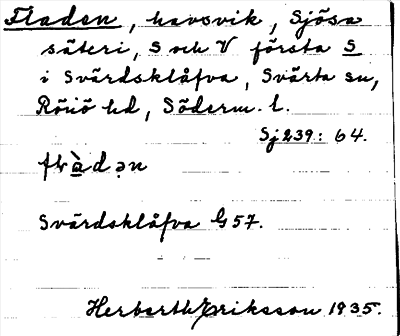 Fladen, havsvik, Sjösa
säteri, S och V första S
i Svärdsklåfva, Svärta sn,
Rönö hd, Söderm. l.
Sj 239: 64.
flàdən
Svärdsklåfva G 57.
Herberth Eriksson 1935.